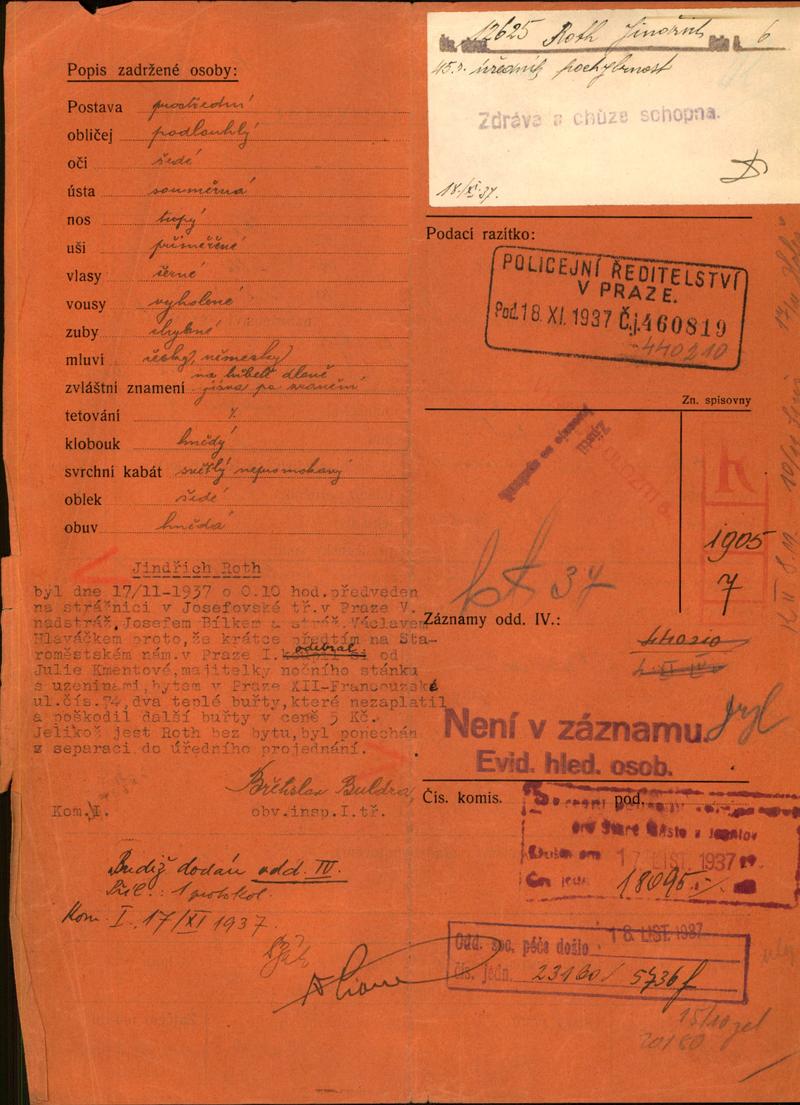 Popis zadržené osoby:
Postava prostřední
obličej podlouhlý
oči šedé
ústa souměrná
nos tupý
uši přiměřené
vlasy černé
vousy vyholené
zuby chybné
mluví česky, německy
na hřbetě dlaně
zvláštní znamení jizva po zranění
tetování
klobouk hnědý
svrchní kabát světlý nepromokavý
oblek šedé
obuv hnědá
Jindřich Roth
byl dne 17/11-1937 o 0.10 hod.předveden
na strážnici v Josefovské tř.v Praze V.
nadstráž.Josefem Bílkem a stráž.Václavem
Hlaváčkem proto,že krátce předtím na Sta-
roměstském nám.v Praze I. odebral od
Julie Kmentové,majitelky nočního stánku
s uzeninami,bytem v Praze XII-Francouzská
ul.čís.74,dva teplé buřty,které nezaplatil
a poškodil další buřty v ceně 5 Kč.
Jelikož jest Roth bez bytu,byl ponechán
z separaci do úředního projednání.
Břetislav Buldra
Kom.I. obv.insp.I.tř.
Budiž dodán odd. IV.
Příl.: 1 protokol.
Kom. I. 17/XI 1937.
12625 Roth Jindřich 6
45.r. úředník
Zdráva a chůze schopna.
18/XI.37.
Podací razítko:
POLICEJNÍ ŘEDITELSTVÍ
V PRAZE.
Pod.18.XI.1937 Č.j.460819
440210
Zn. spisovny
R
1905
7
37
Záznamy odd. IV.:
Není v záznamu.
Evid. hled. osob.
Čís. komis. pod.
pro Staré Město a Josefov
Došlo dne 17.LIST.1937
Čís. jedn. 18095
Odd. soc. péče došlo 18 LIST. 1937
Čís. jedn. 23160/ 5736
20180